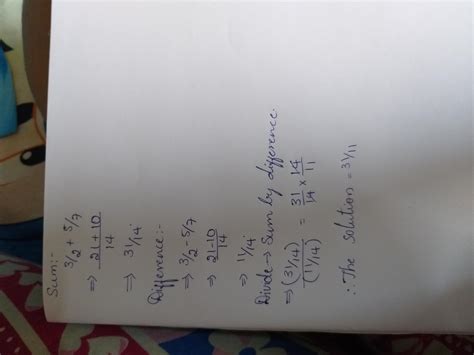 Sum:-
3/2 + 5/7
⇒ 21+10/14
⇒ 31/14
Difference:-
⇒ 3/2 - 5/7
⇒ 21-10/14
⇒ 11/14
Divide → Sum by difference.
⇒ (31/14)/(11/14) = 31/14 × 14/11
∴ The solution = 31/11